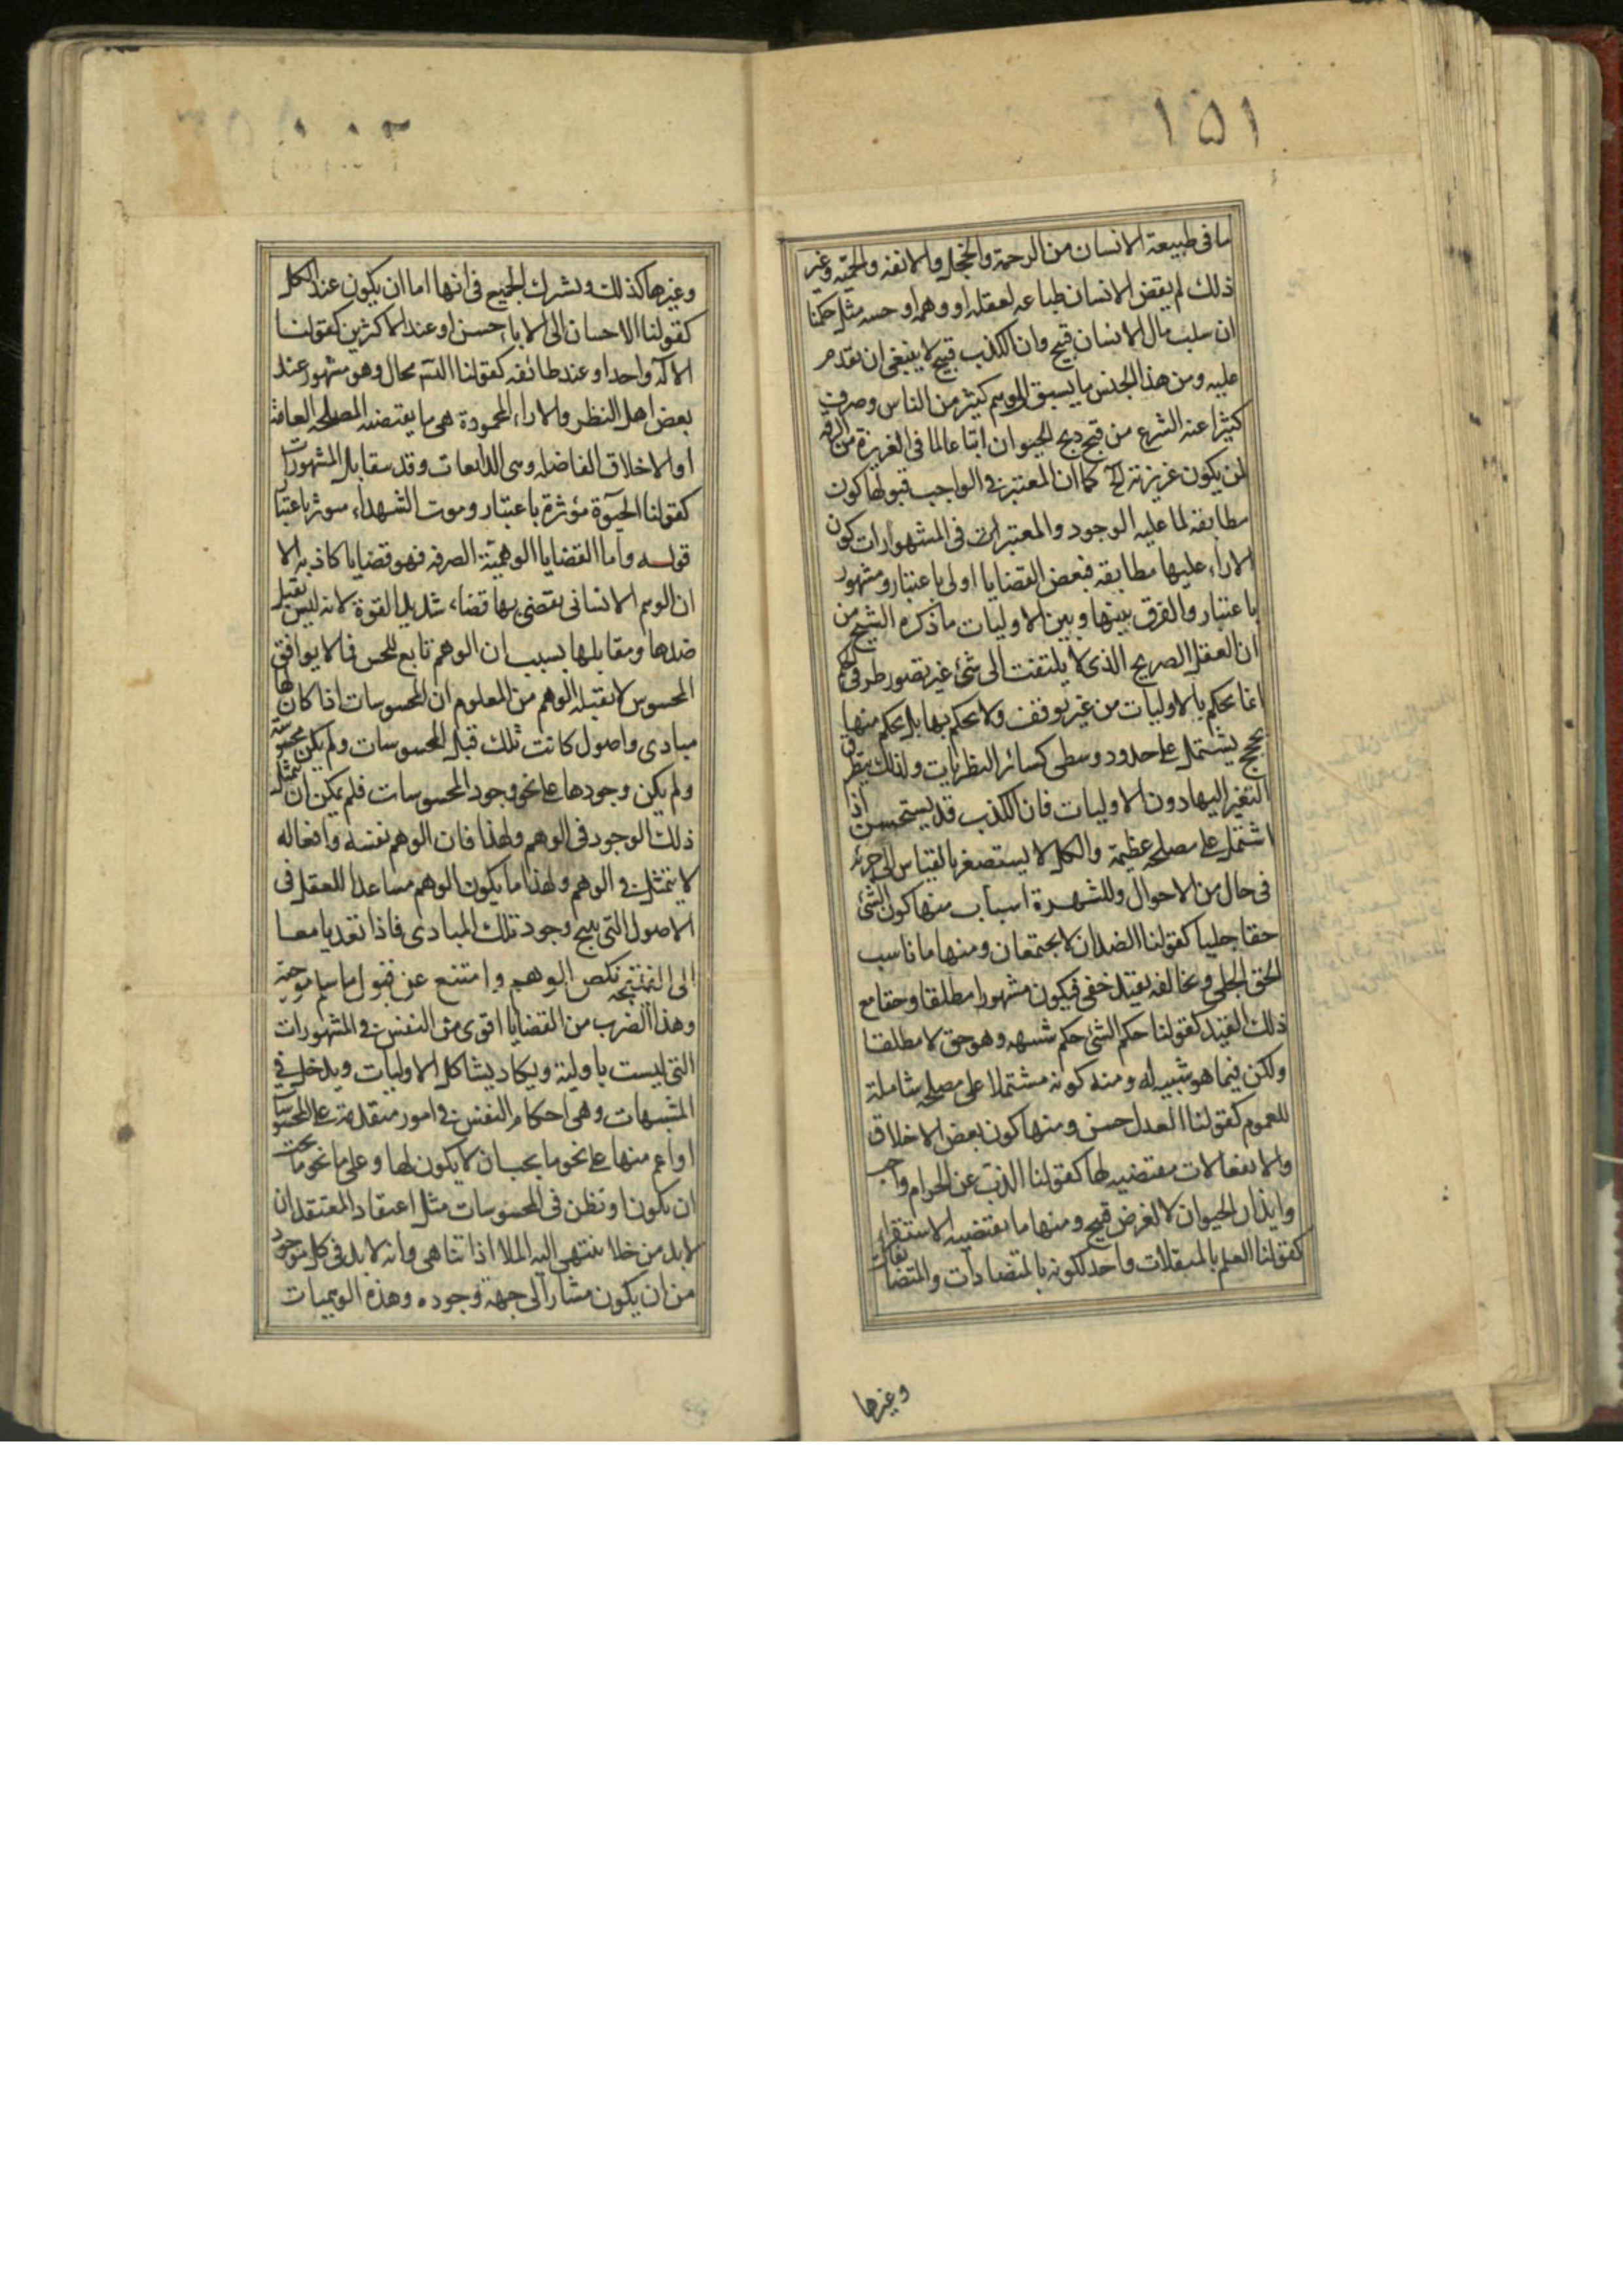 ١٥١
ما فى طبيعة الانسان من الرحمة والخجل والانفه والحميّه وغير
ذلك لم يقض الانسان طباعه لعقله او وهمه او حسه مثل حكمنا
ان سلب مال الانسان قبيح وان الكذب قبيح لا ينبغى ان يقدم
عليه ومن هذا الجنس ما يسبق الى وهم كثير من الناس وصرف
كثيرا عنه الشرع من قبح ذبح الحيوان اتباعا لما فى الغريزة من الرقه
لمن يكون غريزته كما ان المعتبر فى الواجب قبولها كون
مطابقه لما عليه الوجود والمعتبر فى المشهورات كون
الاراء عليها مطابقه فبعض القضايا اولى باعتبار ومشهور
باعتبار والفرق بينها وبين الاوليات ما ذكره الشيخ من
ان العقل الصريح الذى لا يلتفت الى شئ غير تصور طرفى
انما يحكم بالاوليات من غير توقف ولا يحكم بها بل يحكم منها
بحجج يشتمل على حدود وسطى كسائر النظريات ولذلك يتطرق
التغير اليها دون الاوليات فان الكذب قد يستحسن اذ
اشتمل على مصلحه عظيمة والكل لا يستصغر بالقياس الى جزئه
فى حال من الاحوال وللشهرة اسباب منها كون الشئ
حقا جليا كقولنا الضدان لا يجتمعان ومنها ما ناسب
الحق الجلى ويخالفه بقيد خفى فيكون مشهورا مطلقا وحقا مع
ذلك القيد كقولنا حكم الشئ حكم شبهه وهو حق لا مطلقا
ولكن فيما هو شبيه له ومنه كونه مشتملا على مصلحه شاملة
للعموم كقولنا العدل حسن ومنها كون بعض الاخلاق
والانفعالات مقتضيه لها كقولنا الذب عن الحرام واجب
وايذاء الحيوان لا لغرض قبيح ومنها ما يقتضيه الاستقراء
كقولنا العلم بالمتقابلات واحد لكونه بالمتضادات والمتضايفات
وغيرها
وغيرها كذلك ويشرك الجميع فى انها اما ان يكون عند الكل
كقولنا الاحسان الى الاباء حسن او عند الاكثرين كقولنا
الاله واحد او عند طائفه كقولنا التسم محال وهو مشهور عند
بعض اهل النظر والاراء المحمودة هى ما يقتضيه المصلحه العامة
او الاخلاق الفاضله وهى الذايعات وقد يتقابل المشهورات
كقولنا الحيوة مؤثرة باعتبار وموت الشهداء مؤثر باعتبار
قوله واما القضايا الوهمية الصرفه فهو قضايا كاذبه الا
ان الوهم الانسانى يقضى بها قضاء شديد القوة لانه ليس يقبل
ضدها ومقابلها بسبب ان الوهم تابع للحس فما لا يوافق
المحسوس لا يقبله الوهم من المعلوم ان المحسوسات اذا كان لها
مبادى واصول كانت تلك قبل المحسوسات ولم يكن محسوسة
ولم يكن وجودها على نحو وجود المحسوسات فلم يمكن ان يتمثل
ذلك الوجود فى الوهم ولهذا فان الوهم نفسه وافعاله
لا يتمثل فى الوهم ولهذا ما يكون الوهم مساعدا للعقل فى
الاصول التى ينتج وجود تلك المبادى فاذا تعديا معا
الى النتيجه نكص الوهم وامتنع عن قبول ما سلم موجبه
وهذا الضرب من القضايا اقوى من النفس فى المشهورات
التى ليست باولية ويكاد يشاكل الاوليات ويدخل فى
المشبهات وهى احكام النفس فى امور متقدمة على المحسوسات
او اعم منها على نحو ما يجب ان لا يكون لها وعلى ما نحو ما يجب
ان يكون او تظن فى المحسوسات مثل اعتقاد المعتقد ان
لا بد من خلا ينتهى اليه الملا اذا تناهى وانه لا بد فى كل موجود
من ان يكون مشارا الى جهة وجوده وهذه الوهميات